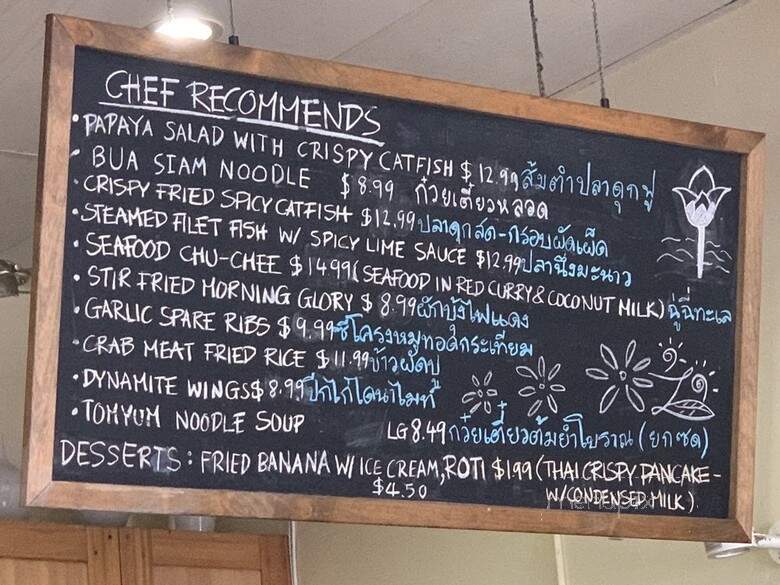 CHEF RECOMMENDS
• PAPAYA SALAD WITH CRISPY CATFISH $12.99 ส้มตำปลาดุกฟู
BUA SIAM NOODLE $8.99 ก๋วยเตี๋ยวหลอด
• CRISPY FRIED SPICY CATFISH $12.99 ปลาดุกสด-กรอบผัดเผ็ด
• STEAMED FILET FISH W/ SPICY LIME SAUCE $12.99 ปลานึ่งมะนาว
• SEAFOOD CHU-CHEE $14.99 (SEAFOOD IN RED CURRY & COCONUT MILK) ฉู่ฉี่ทะเล
• STIR FRIED MORNING GLORY $8.99 ผักบุ้งไฟแดง
• GARLIC SPARE RIBS $9.99 ซี่โครงหมูทอดกระเทียม
• CRAB MEAT FRIED RICE $11.99 ข้าวผัดปู
• DYNAMITE WINGS $8.99 ปีกไก่ไดนาไมท์
• TOMYUM NOODLE SOUP LG 8.49 ก๋วยเตี๋ยวต้มยำโบราณ (ยกซด)
DESSERTS: FRIED BANANA W/ ICE CREAM, ROTI $1.99 (THAI CRISPY PANCAKE -
$4.50 W/CONDENSED MILK)